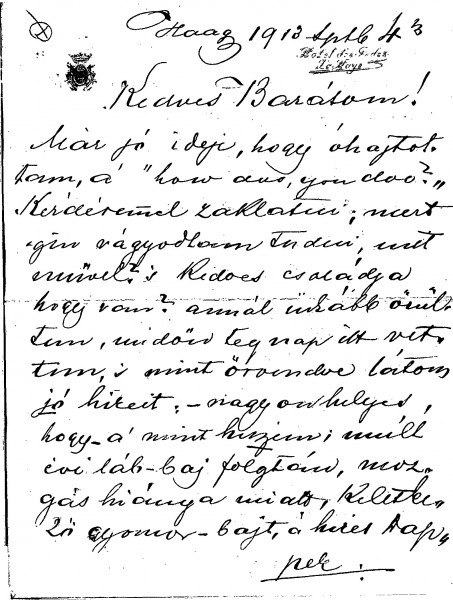 Haag 1913 Sptb 4
Hotel des Indes
La Haye
Kedves Barátom!
Már jó ideje, hogy óhajtot-
tam, á "how dos, you doo?"
Kérdésemmel zaklatni; mert
igen vágyodtam tudni, mit
müvel? 's Kedves családja
hogy van? annál inkább örül-
tem, midőn tegnap itt vet-
tem, 's mint örvendve látom
jó híreit; - nagyon helyes,
hogy - á mint hiszem; múlt
évi láb-baj folytán, moz-
gás hiánya miatt, Keletke-
ző gyomor-bajt, á híres Kap"
pek.